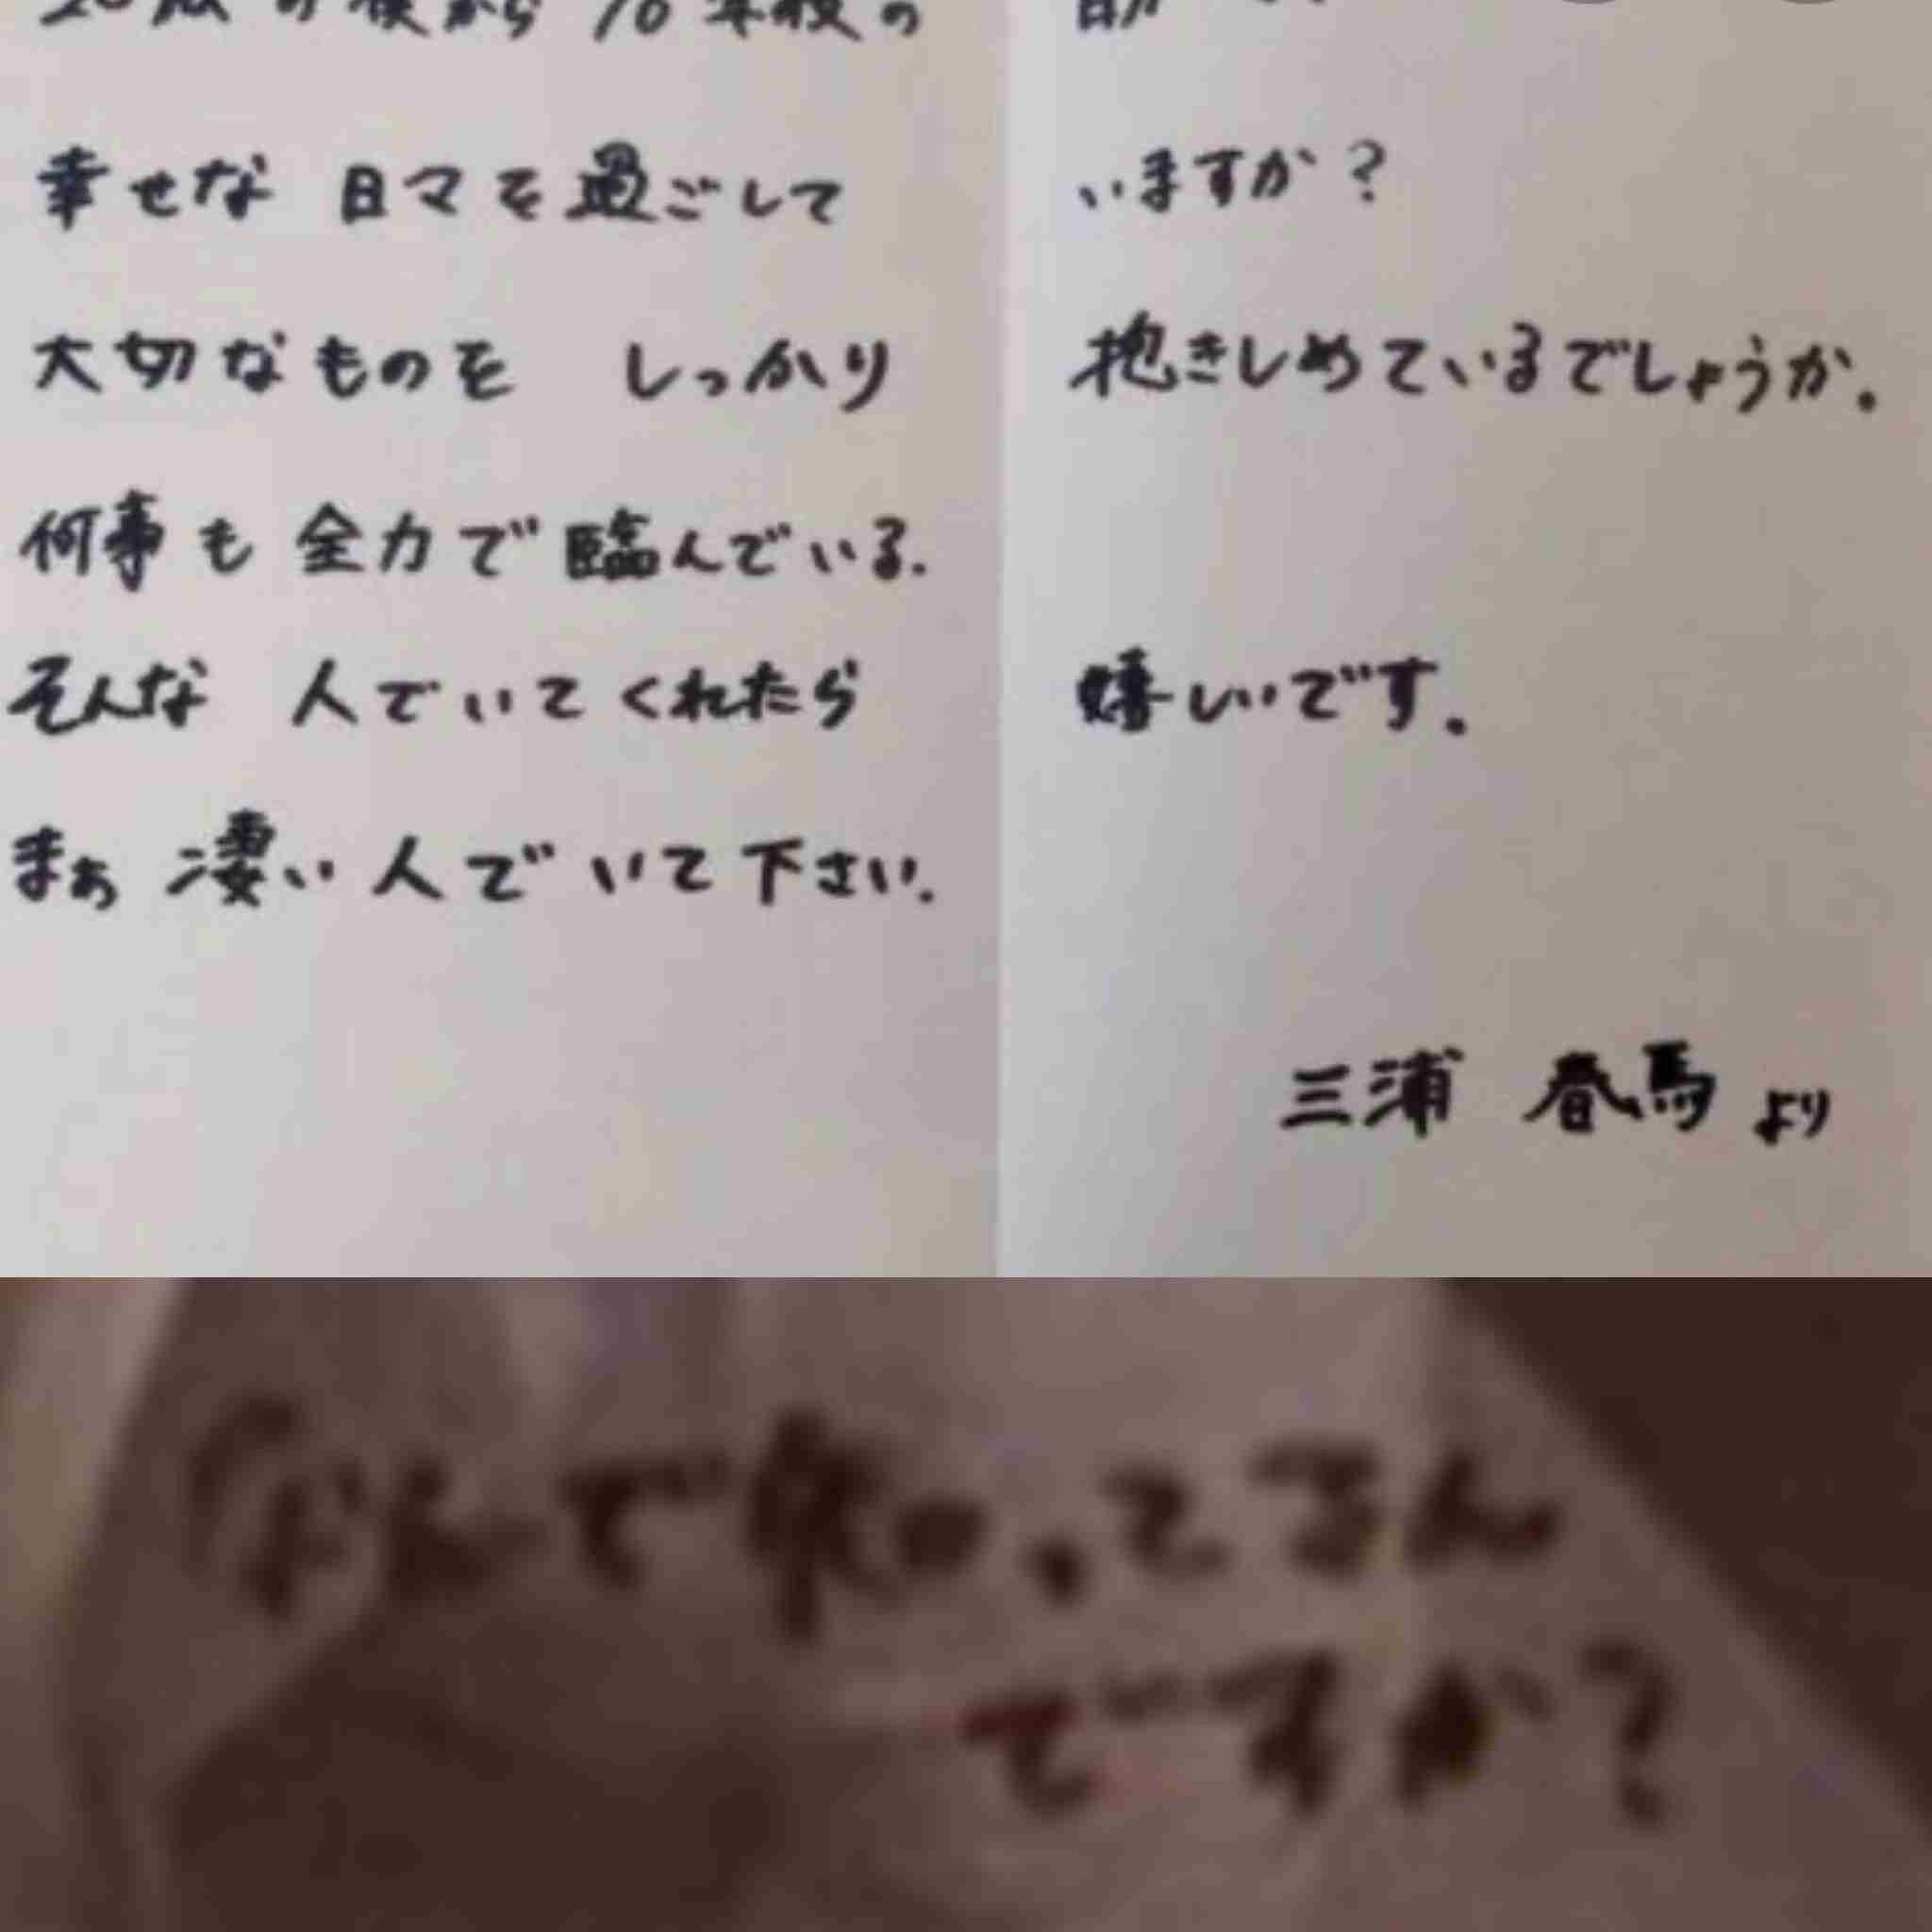 20歳の僕から 10年後の
幸せな 日々を過ごして いますか?
大切なものを しっかり 抱きしめているでしょうか.
何事も 全力で臨んでいる.
そんな 人でいてくれたら 嬉しいです.
まぁ 凄い人でいて下さい.
三浦 春馬より
「なんで知ってるん
ですか?